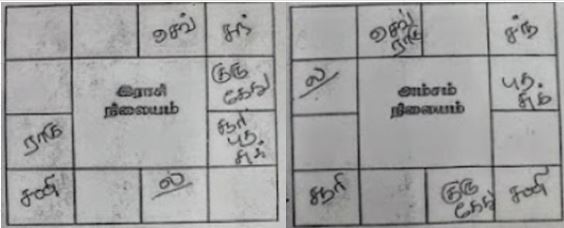 செவ்
சந்
குரு
கேது
இராசி
நிலையம்
ராகு
சூரி
புத
சுக்
சனி
ல
செவ்
ராகு
சந்
ல
புத
சுக்
அம்சம்
நிலையம்
சூரி
குரு
கேது
சனி